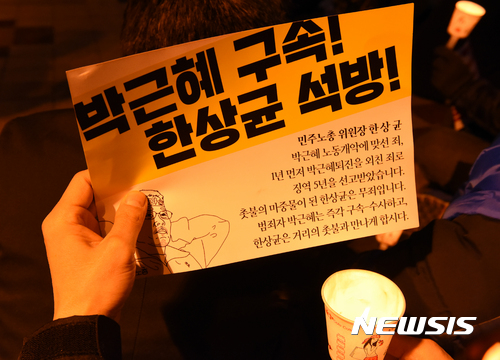 박근혜 구속!
한상균 석방!
민주노총 위원장 한 상 균
박근혜 노동개악에 맞선 죄,
1년 먼저 박근혜퇴진을 외친 죄로
징역 5년을 선고받았습니다.
촛불의 마중물이 된 한상균은 무죄입니다.
범죄자 박근혜는 즉각 구속·수사하고,
한상균은 거리의 촛불과 만나게 합시다.
NEWSIS